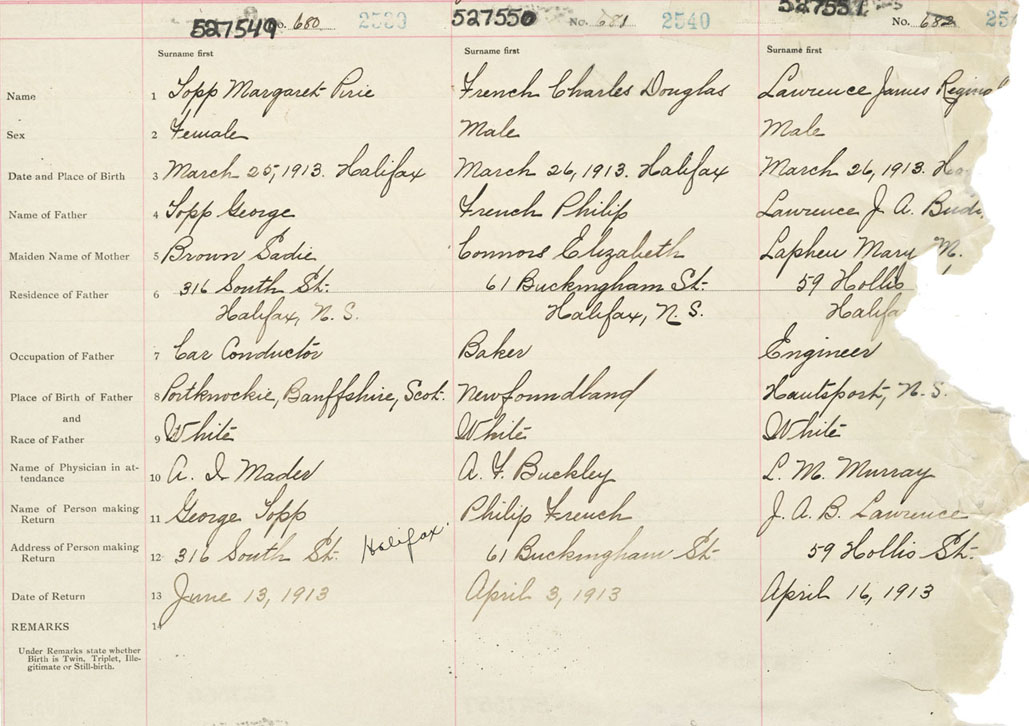 527549 No. 680 2539 527550 No. 681 2540 527551 No. 682
Surname first Surname first Surname first
Name 1 Topp Margaret Pirie French Charles Douglas Lawrence James
Sex 2 Female Male Male
Date and Place of Birth 3 March 25, 1913. Halifax March 26, 1913. Halifax March 26, 1913.
Name of Father 4 Topp George French Philip Lawrence J. A.
Maiden Name of Mother 5 Brown Sadie Connors Elizabeth Mary M.
Residence of Father 6 316 South St. 61 Buckingham St. 59 Hollis
Halifax, N. S. Halifax, N. S. Halifa
Occupation of Father 7 Car Conductor Baker Engineer
Place of Birth of Father 8 Portknockie, Banffshire, Scot. Newfoundland Hautsport, N. S.
and
Race of Father 9 White White White
Name of Physician in at-
tendance 10 A. I. Mader A. F. Buckley L. M. Murray
Name of Person making
Return 11 George Topp Philip French J. A. B. Lawrence
Address of Person making
Return 12 316 South St. Halifax 61 Buckingham St. 59 Hollis St.
Date of Return 13 June 13, 1913 April 3, 1913 April 16, 1913
REMARKS 14
Under Remarks state whether
Birth is Twin, Triplet, Ille-
gitimate or Still-birth.